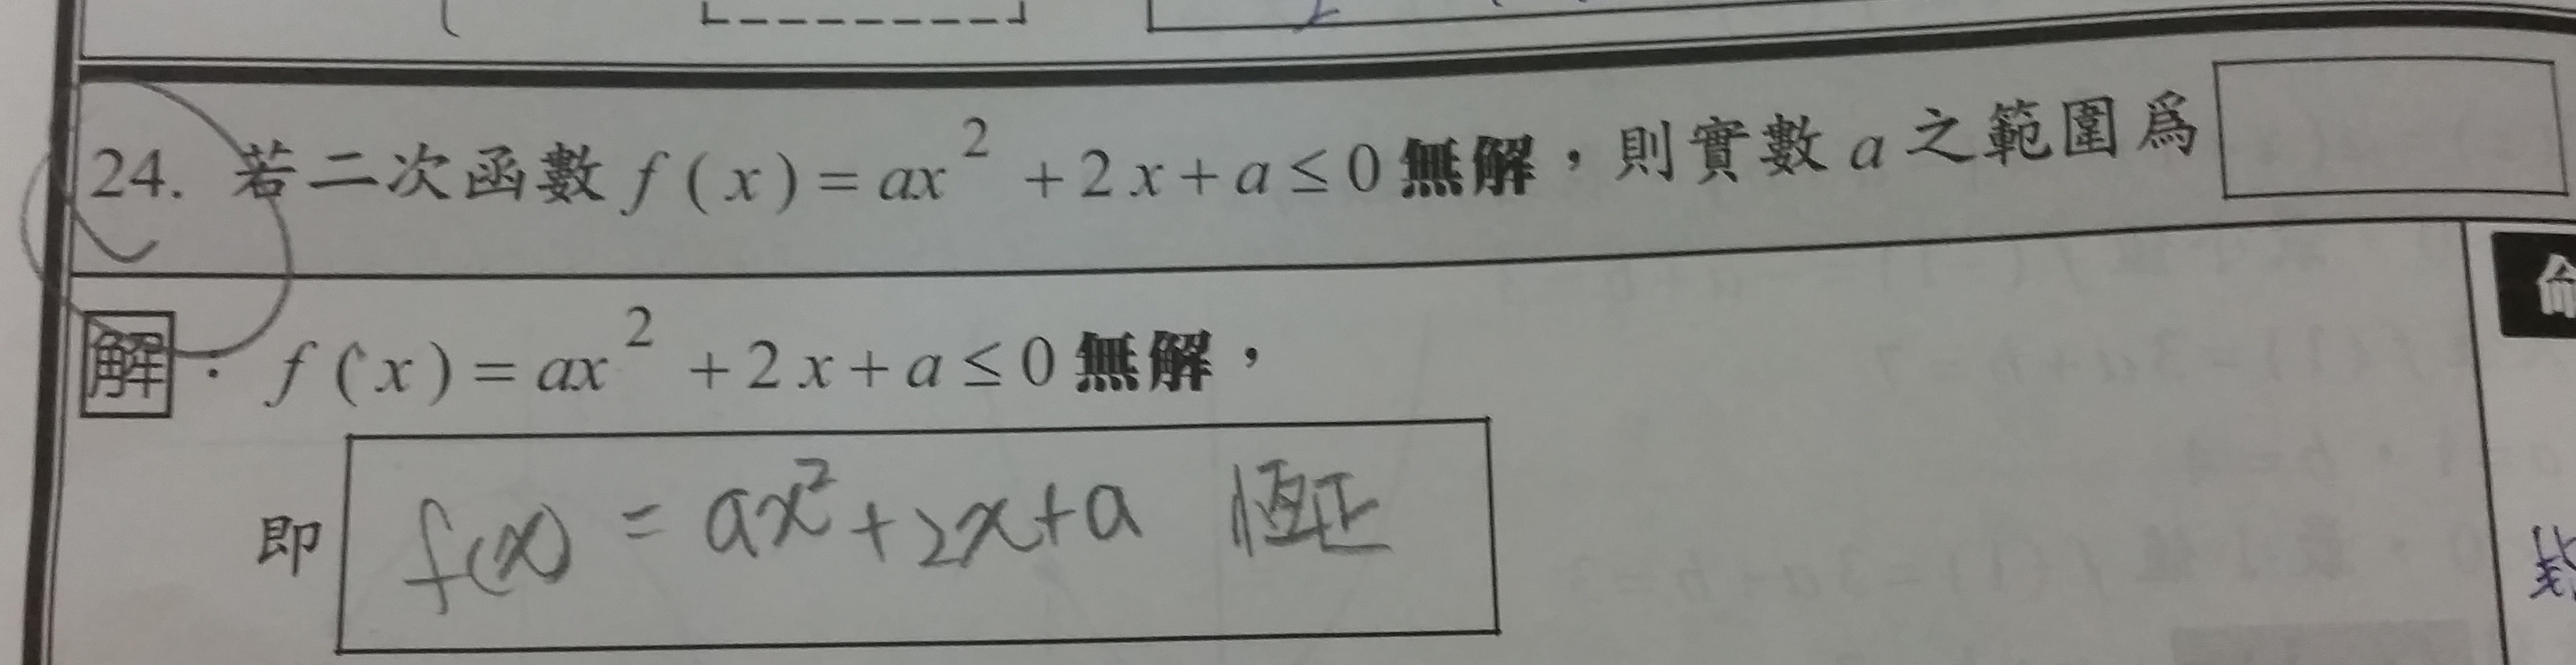 24. 若二次函數 f(x)=ax²+2x+a≤0 無解，則實數 a 之範圍爲
解：f(x)=ax²+2x+a≤0 無解，
即 f(x)=ax²+2x+a 恆正